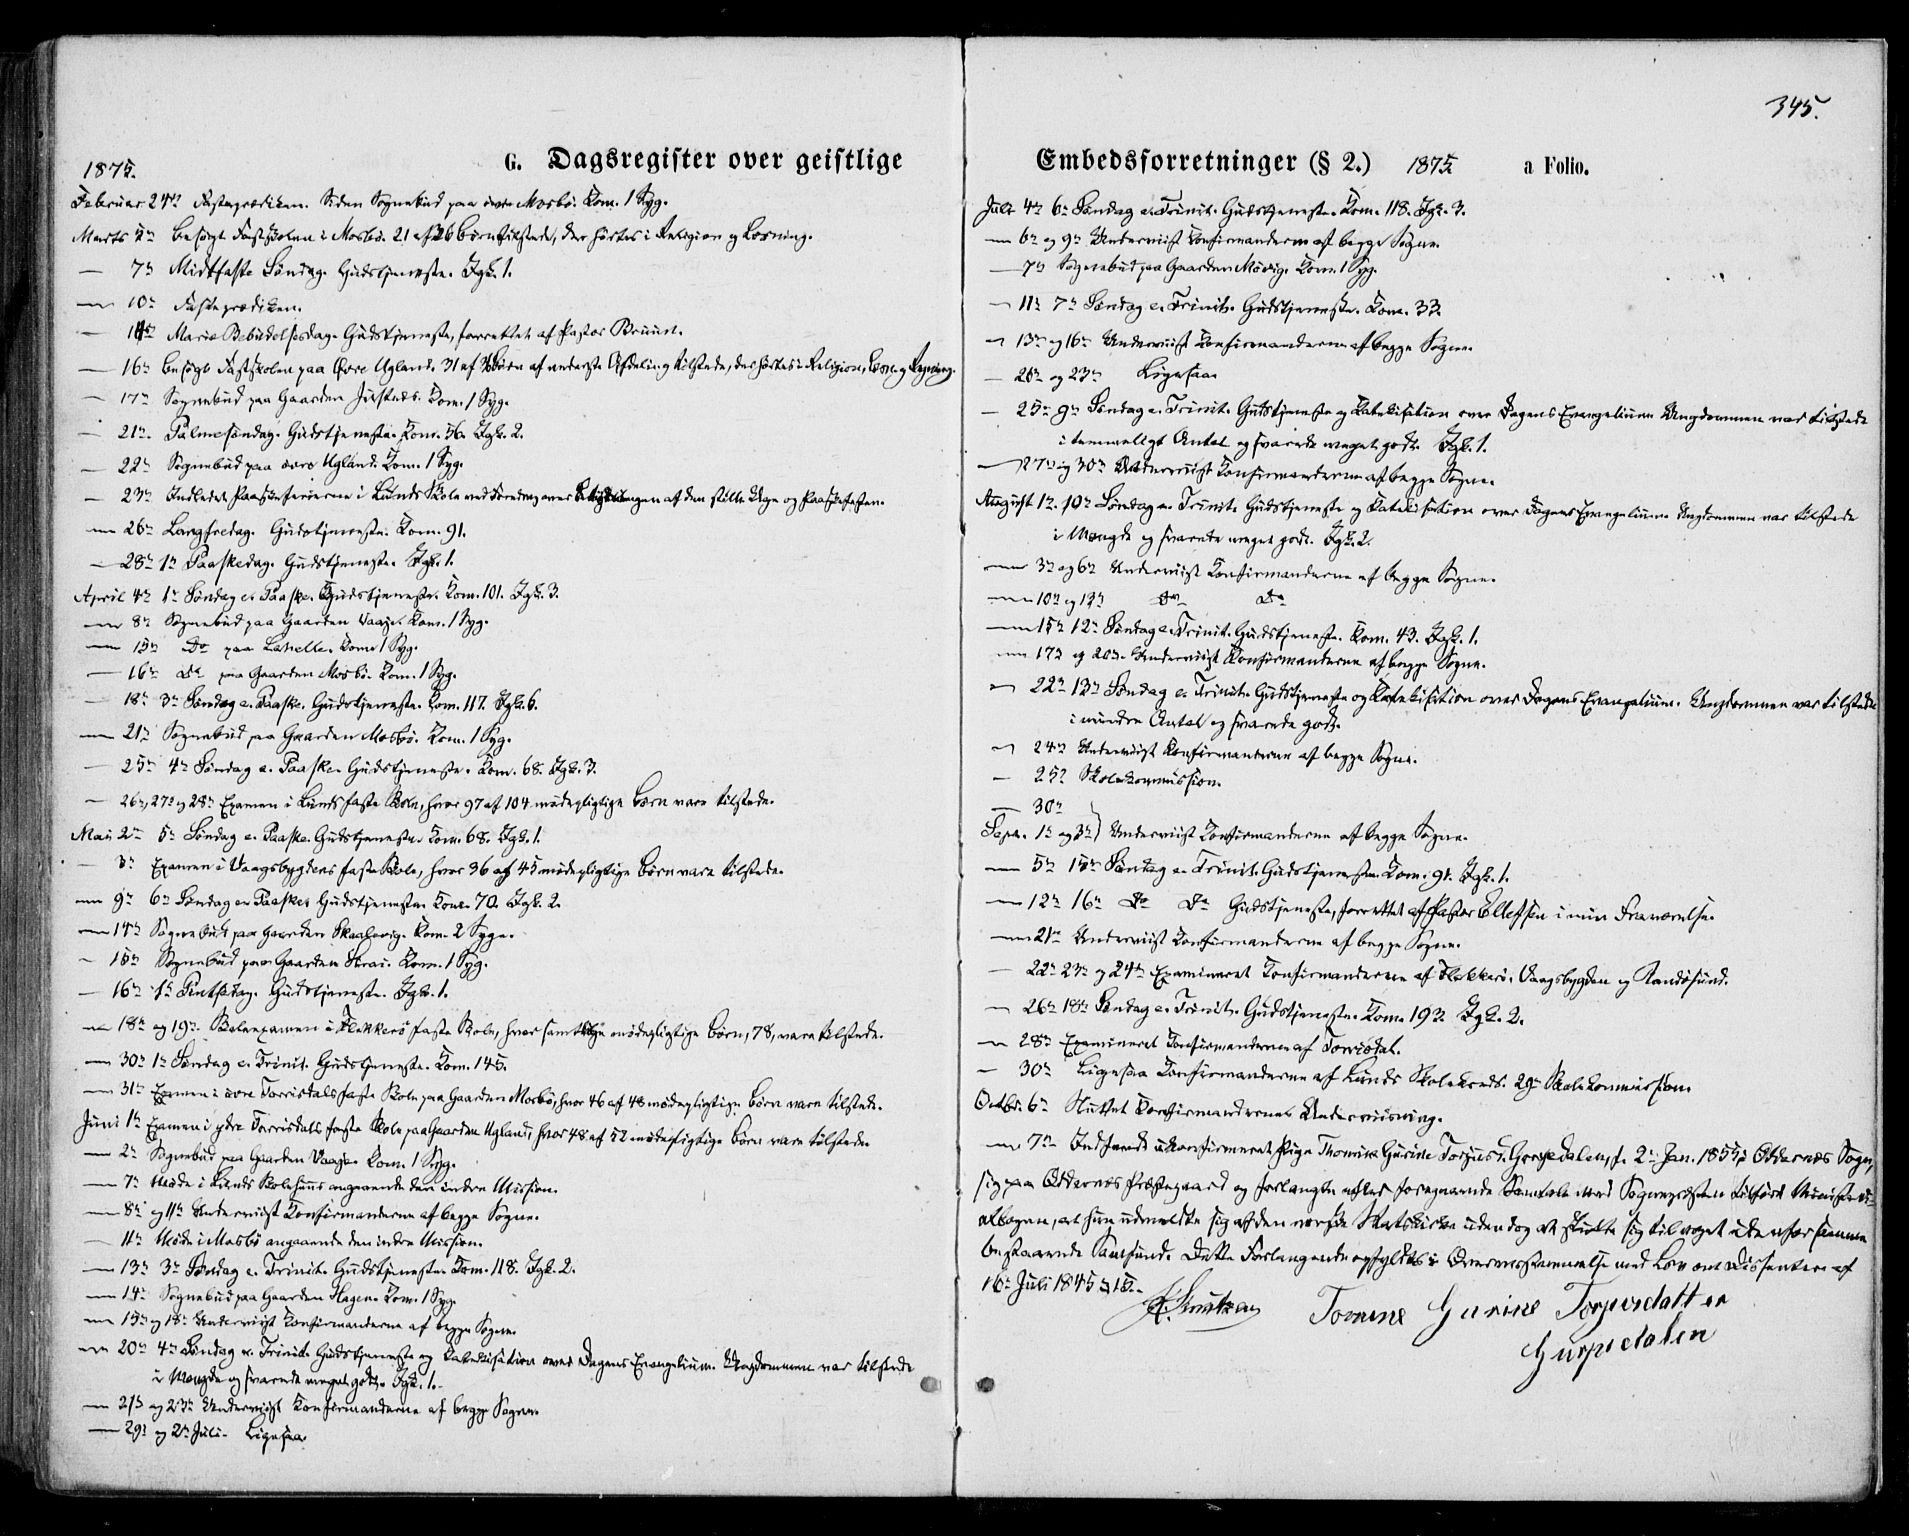 1875.
G. Dagsregister over geistlige
Februar 24de Fasteprædiken. Siden Sognebud paa øvre Mosbø. Kom. 1 Syg.
Marts 2den Besøgt Fastskolen i Mosbø. 21 af 26 Børn tilstede, der hørtes i Religion og Læsning.
— 7de Midtfaste Søndag. Gudstjeneste. Igk. 1.
— 10de Fasteprædiken.
— 14de Mariæ Bebudelsesdag. Gudstjeneste, forrettet af Pastor Bruun.
— 16de Besøgt Fastskolen paa Øvre Ugland. 31 af Børn af nederste Afdeling tilstede, der hørtes i Religion, Læsn. og Regning.
— 17de Sognebud paa Gaarden Kom. 1 Syg.
— 21de Palmesøndag. Gudstjeneste. Kom. 56. Igk. 2.
— 22de Sognebud paa øvre Ugland. Kom. 1 Syg.
— 23de Indledet Paaskeferierne i Lunds Skole ved Foredrag over Betydningen af den stille Uge og Paaskefesten.
— 26de Langfredag. Gudstjeneste. Kom. 91.
— 28de 1ste Paaskedag. Gudstjeneste. Igk. 1.
April 4de 1ste Søndag e. Paaske. Gudstjeneste. Kom. 101. Igk. 3.
— 8de Sognebud paa Gaarden Vaaje. Kom. 1 Syg.
— 15de Do paa Lahelle. Kom. 1 Syg.
— 16de Do paa Gaarden Mosbø. Kom. 1 Syg.
— 18de 3die Søndag e. Paaske. Gudstjeneste. Kom. 117. Igk. 6.
— 21de Sognebud paa Gaarden Mosbø. Kom. 1 Syg.
— 25de 4de Søndag e. Paaske. Gudstjeneste. Kom. 68. Igk. 3.
— 26de, 27de og 28de Examen i Lunds faste Skole, hvor 97 af 104 mødepligtige Børn vare tilstede.
Mai 2den 5te Søndag e. Paaske. Gudstjeneste. Kom. 68. Igk. 1.
— 3die Examen i Vaagsbygdens faste Skole, hvor 36 af 45 mødepligtige Børn vare tilstede.
— 9de 6te Søndag e. Paaske. Gudstjeneste. Kom. 70. Igk. 2.
— 14de Sognebud paa Gaarden Skaalevig. Kom. 2 Syge.
— 15de Sognebud paa Gaarden Strai. Kom. 1 Syg.
— 16de 1ste Pintsedag. Gudstjeneste. Igk. 1.
— 18de og 19de Skoleexamen i Flekkerø faste Skole, hvor samtlige mødepligtige Børn, 78, vare tilstede.
— 30te 1ste Søndag e. Trinit. Gudstjeneste. Kom. 145.
— 31te Examen i øvre Torrisdals faste Skole paa Gaarden Mosbø, hvor 46 af 48 mødepligtige Børn vare tilstede.
Juni 1ste Examen i ydre Torrisdals faste Skole paa Gaarden Ugland, hvor 48 af 52 mødepligtige Børn vare tilstede.
— 2den Sognebud paa Gaarden Vaaje. Kom. 1 Syg.
— 7de Møde i Lunds Skolehuus angaaende den indre Mission.
— 8de og 11te Underviist Konfirmanderne af begge Sogne.
— 11te Møde i Mosbø angaaende den indre Mission.
— 13de 3die Søndag e. Trinit. Gudstjeneste. Kom. 118. Igk. 2.
— 14de Sognebud paa Gaarden Hagen. Kom. 1 Syg.
— 15de og 18de Underviist Konfirmanderne af begge Sogne.
— 20de 4de Søndag e. Trinit. Gudstjeneste og Katekisation over Dagens Evangelium. Ungdommen var tilstede
i Mængde og svarede meget godt. Igk. 1.
— 21de og 23de Underviist Konfirmanderne af begge Sogne.
— 29de og 2den Juli. Ligesaa.
345.
Embedsforretninger (§ 2.) 1875. a Folio.
Juli 4de 6te Søndag e. Trinit. Gudstjeneste. Kom. 118. Igk. 3.
— 6te og 9de Underviist Konfirmanderne af begge Sogne.
— 7de Sognebud paa Gaarden Møvig. Kom. 1 Syg.
— 11te 7de Søndag e. Trinit. Gudstjeneste. Kom. 33.
— 13de og 16de Underviist Konfirmanderne af begge Sogne.
— 20de og 23de Ligesaa.
— 25de 9de Søndag e. Trinit. Gudstjeneste og Katekisation over Dagens Evangelium. Ungdommen var tilstede
i temmeligt Antal og svarede meget godt. Igk. 1.
— 27de og 30te Underviist Konfirmanderne af begge Sogne.
August 1ste 10de Søndag e. Trinit. Gudstjeneste og Katekisation over Dagens Evangelium. Ungdommen var tilstede
i Mængde og svarede meget godt. Igk. 2.
— 3die og 6te Underviist Konfirmanderne af begge Sogne.
— 10de og 13de Do Do
— 15de 12te Søndag e. Trinit. Gudstjeneste. Kom. 43. Igk. 1.
— 17de og 20de Underviist Konfirmanderne af begge Sogne.
— 22de 13de Søndag e. Trinit. Gudstjeneste og Katekisation over Dagens Evangelium. Ungdommen var tilstede
i mindre Antal og svarede godt.
— 24de Underviist Konfirmanderne af begge Sogne.
— 25de Skolekommission.
— 30te
Sept. 1ste og 3die } Underviist Konfirmanderne af begge Sogne.
— 5te 15de Søndag e. Trinit. Gudstjeneste. Kom. 91. Igk. 1.
— 12te 16de Do Do Gudstjeneste, forrettet af Pastor Ellefsen i min Fraværelse.
— 21de Underviist Konfirmanderne af begge Sogne.
— 22de 23de og 24de Examineret Konfirmanderne af Flekkerø, Vaagsbygden og Randøsund.
— 26de 18de Søndag e. Trinit. Gudstjeneste. Kom. 193. Igk. 2.
— 28de Examineret Konfirmanderne af Torrisdal.
— 30te Ligesaa Konfirmanderne af Lunds Skolekreds. 29de Skolekommission.
Octbr. 6te Sluttet Konfirmandernes Underviisning.
— 7de Indfandt ukonfirmeret Pige Thomine Gurine Torjusd. Gurpedalen, f. 2den Jan. 1855 i Oddernes Sogn,
sig paa Oddernes Præstegaard og forlangte efter foregaaende Samtale med Sognepresten tilført Ministeri-
albogen, at hun udmeldte sig af den norske Statskirke uden dog at slutte sig til noget udenfor samme
bestaaende Samfund. Dette Forlangende opfyldtes i Overensstemmelse med Lov om Dissentere af
16de Juli 1845 § 15.
Knutzen
Tomine Gurine Torjusdatter
Gurpedalen